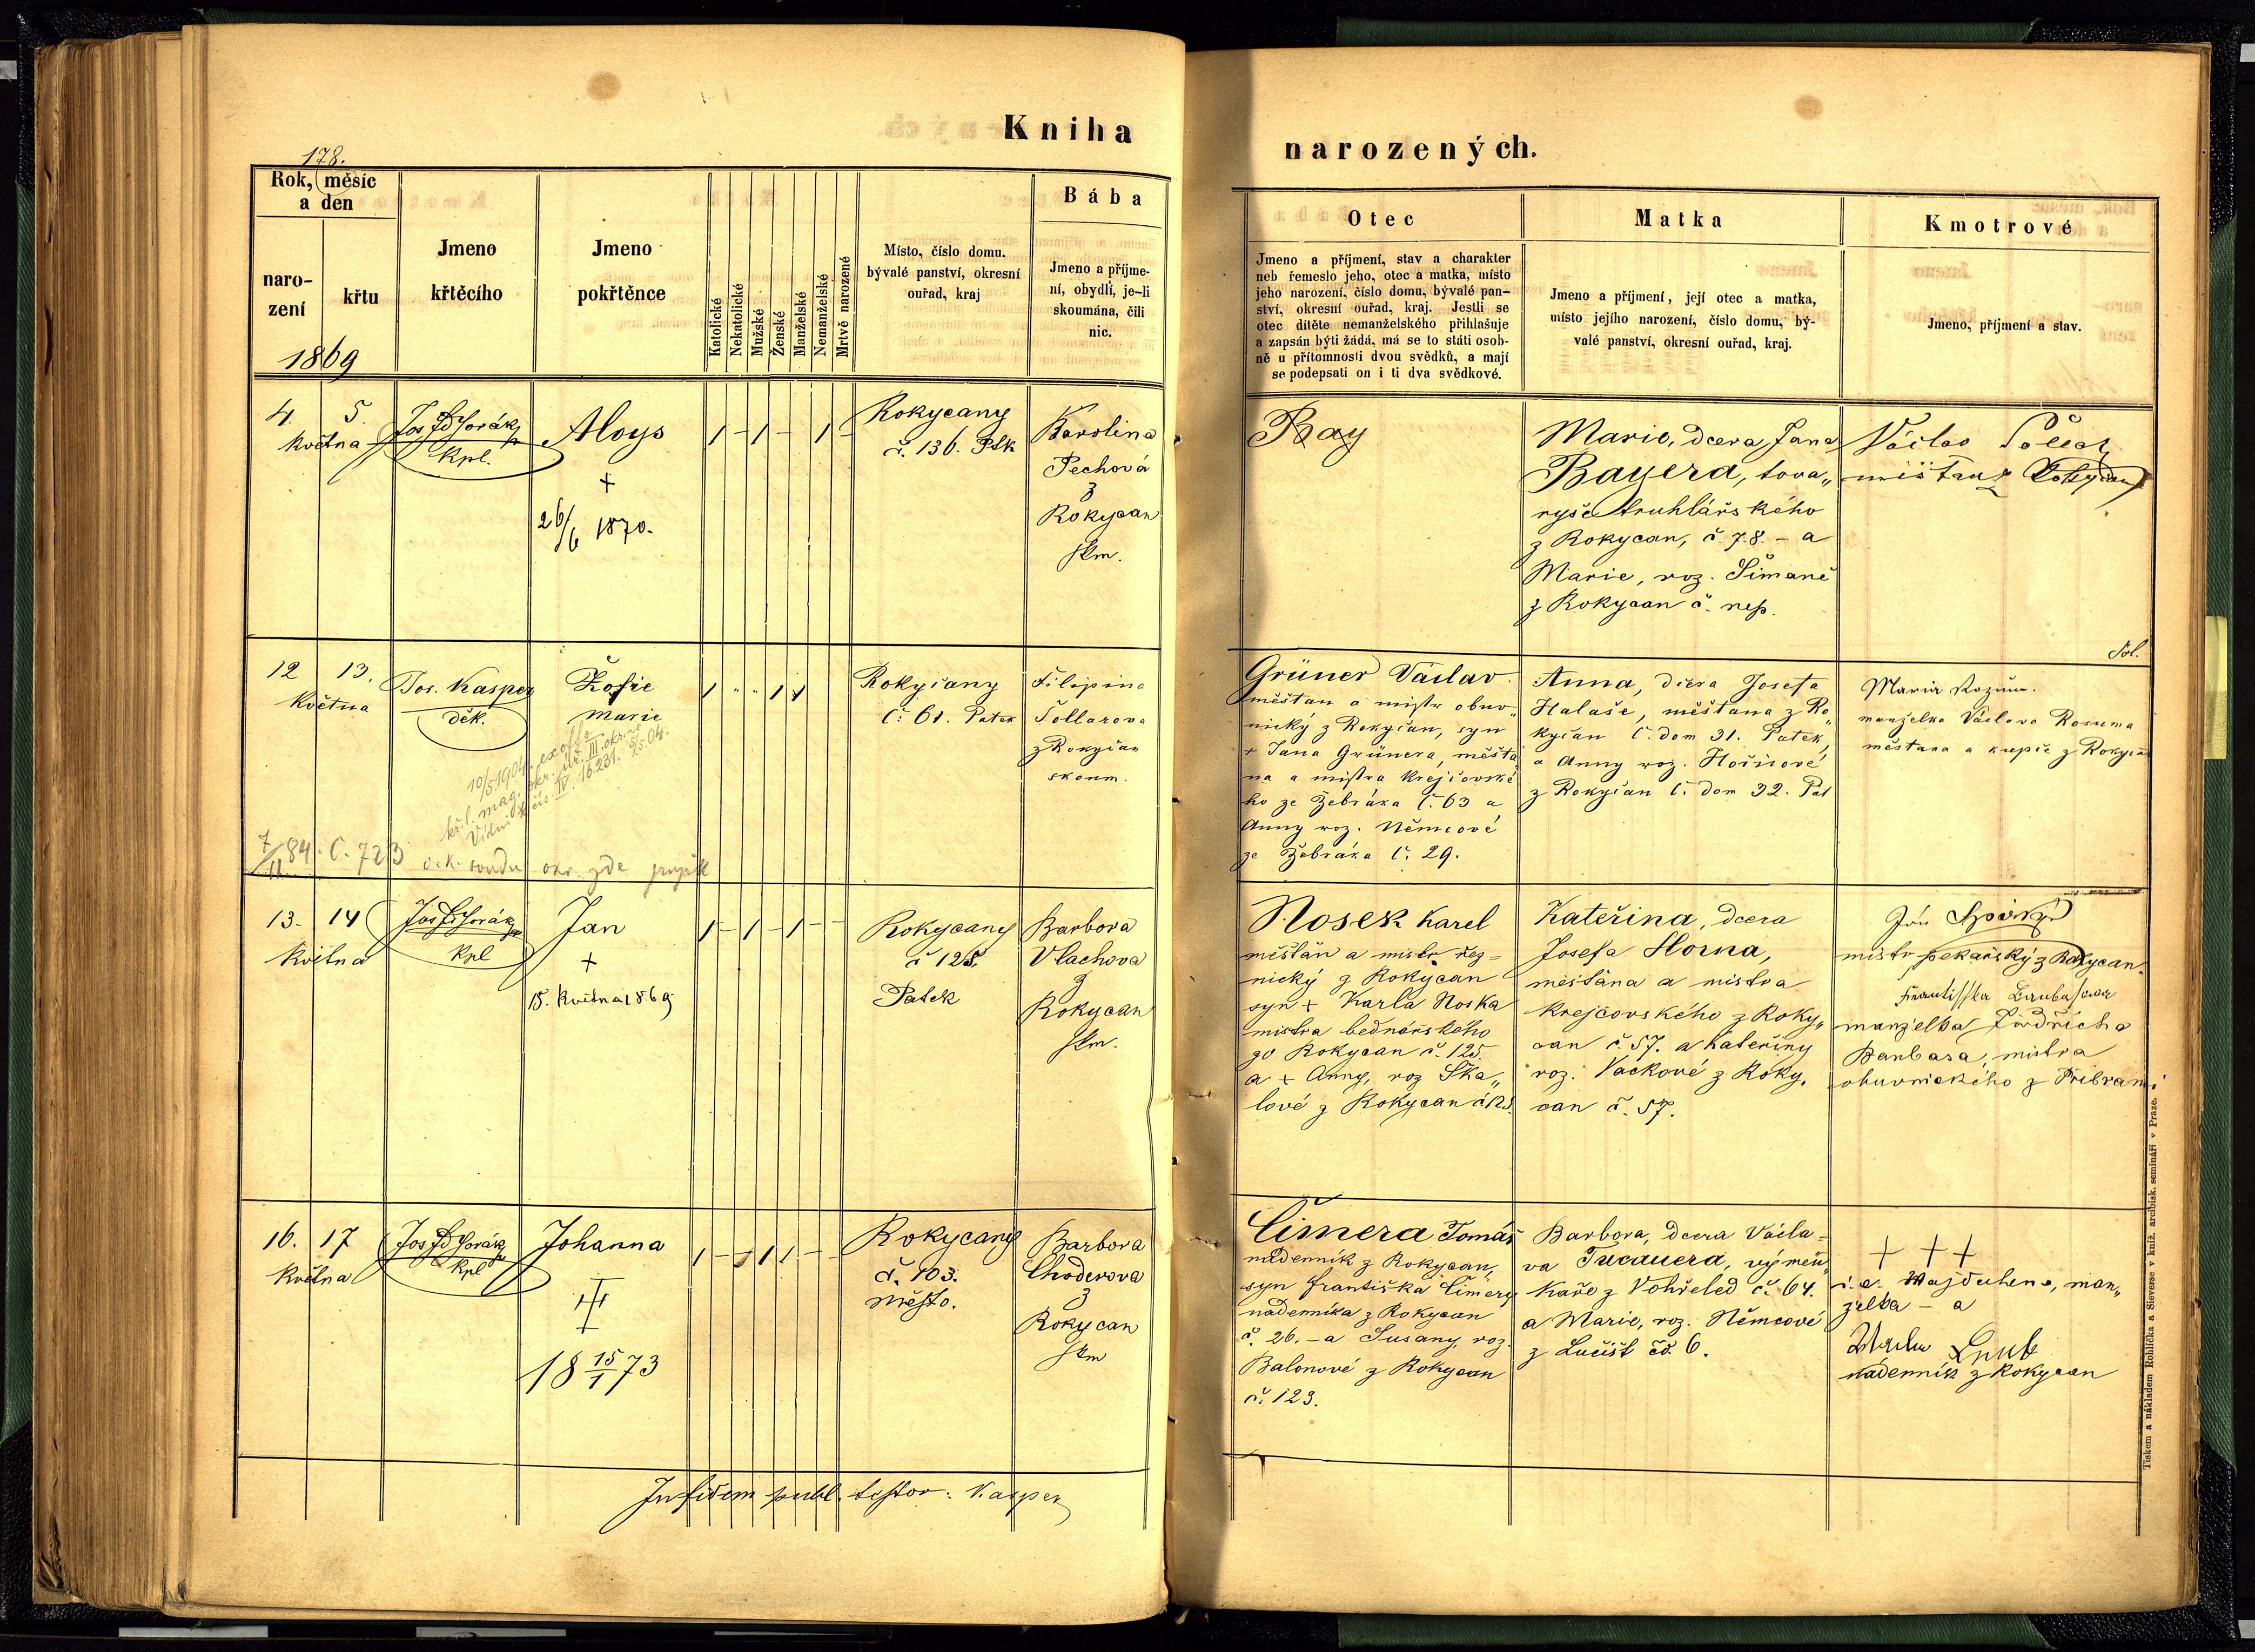 Kniha
narozených.
178.
Rok, měsíc
a den
naro-
zení
křtu
1869
Jmeno
křtěcího
Jmeno
pokřtěnce
Katolické
Nekatolické
Mužské
Ženské
Manželské
Nemanželské
Mrtvě narozené
Místo, číslo domu.
bývalé panství, okresní
ouřad, kraj
Bába
Jmeno a příjme-
ní, obydlí, je-li
skoumána, čili
nic.
Otec
Jmeno a příjmení, stav a charakter
neb řemeslo jeho, otec a matka, místo
jeho narození, číslo domu, bývalé pan-
ství, okresní ouřad, kraj. Jestli se
otec dítěte nemanželského přihlašuje
a zapsán býti žádá, má se to státi osob-
ně u přítomnosti dvou svědků, a mají
se podepsati on i ti dva svědkové.
Matka
Jmeno a příjmení, její otec a matka,
místo jejího narození, číslo domu, bý-
valé panství, okresní ouřad, kraj.
Kmotrové
Jmeno, příjmení a stav.
4. 5.
Května
Kpl.
Aloys
+
26/6 1870.
Rokycany
č. 136.
Karolina
Pechová
z
Rokycan
skm.
Bay
Marie, dcera Jana
Bayera, tova„
ryše truhlářského
z Rokycan, č. 78. - a
Marie, roz. Šimané
z Rokycan č. nep.
Václav
měšťan z
12 13.
Května
Jos. Kasper
děk.
Žofie
Marie
10/5 1904 ex offo
kr. hl. mag.
Vídni
16231. 5/5.04.
7/11 84. č. 723 c.k. soudu okr. zde
Rokyčany
č. 61. Patek
Filipina
Tollarova
z Rokyčan
skoum.
Grüner Václav
měšťan a mistr obuv„
nický z Rokyčan, syn
+ Jana Grünera, měšťa„
na a mistra krejčovské
ho ze Žebráka č. 63 a
Anny roz. Němcové
ze Žebráka č. 29.
Anna, dcera Josefa
Halaše, měšťana z Ro„
kyčan č. dom 31. Patek,
a Anny roz. Hořicové
z Rokyčan č. dom 32. Pat
Maria Rozum.
manželka Václava Rosuma
měšťana a kupce z Rokyčan
13. 14
Května
Kpl
Jan
+
15. Května 1869
Rokycany
č 125.
Patek
Barbora
Vlachova
z
Rokycan
skm.
Nosek Karel
měšťan a mistr řez-
nický z Rokycan
syn + Karla Noska
mistra bednářského
ze Rokycan č. 125.
a + Anny, roz Ška„
lové z Rokycan č 125.
Kateřina, dcera
Josefa Horna,
měšťana a mistra
krejčovského z Roky„
can č. 57. a Kateřiny
roz. Vackové z Roky„
can č. 57.
Jan
mistr pekařský z Rokycan.
manželka Jindřicha
Banbasa, mistra
obuvnického z Příbrami
16. 17
Května
Kpl
Johanna
18 15/1 73
Rokycany
č. 103.
Město.
Barbora
Choderova
z
Rokycan
skm
Čimera Tomáš
nádenník z Rokycan,
syn Františka Čimery
nádenníka z Rokycan
č. 26. - a Susany, roz.
Balonové z Rokycan
č. 123.
Barbora, dcera Václa-
va Tucauera, výměn„
kaře z Vohřeled č. 64.
a Marie, roz. Němcové
z Lučišť čd. 6.
+ + +
man„
želka - a
nádenník z Rokycan
In fidem publ. testor: Kasper
Tiskem a nákladem Rohlíčka a Sieverse v kníž. arcibisk. semináři v Praze.